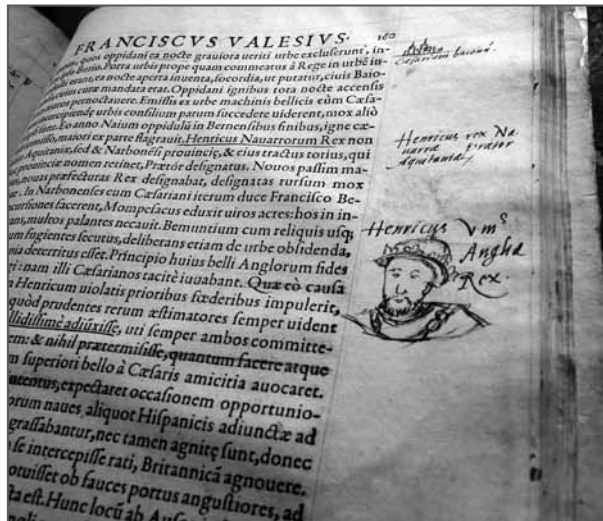 FRANCISCVS VALESIVS. 160
quos oppidani ea nocte grauiora ueriti urbe excluserunt, in-
Burio. Porta urbis prope quam commeatus à Rege in urbē in-
erant, ea nocte aperta inuenta, socordia, ut putatur, ciuis Baio-
cuius curæ mandata erat. Oppidani ignibus tota nocte accensis
muros pernoctauere. Emissis ex urbe machinis bellicis cùm Cæsa-
recipiendę urbis consilium parum succedere uiderent, mox aliò
sunt. Eo anno Naium oppidulū in Bernensibus finibus, igne cæ-
misso, maiori ex parte flagrauit. Henricus Nauarrorum Rex non
Aquitaniæ, sed & Narbonēsis prouincię, & eius tractus totius, qui
prouinciæ nomen retinet, Prætor designatus. Nouos passim ma-
nouas præfecturas Rex designabat, designatas rursum mox
. In Narbonenses cum Cæsariani iterum duce Francisco Be-
cursiones facerent, Mompesacus eduxit uiros acres: hos in in-
ans, multos palantes necauit. Bemuntium cum reliquis usq;
um fugientes secutus, deliberans etiam de urbe obsidenda,
nia deterritus esset. Principio huius belli Anglorum fides
ei: nam illi Cæsarianos tacitè iuuabant. Quæ eò causa
Henricum uiolatis prioribus fœderibus impulerit,
quòd prudentes rerum æstimatores semper uident
llidissimè adiūxisse, uti semper ambos committe-
em: & nihil prætermisisse, quantum facere atque
m superiori bello à Cæsaris amicitia auocaret.
ntentus, expectaret occasionem opportunio-
orum naues aliquot Hispanicis adiunctæ ad
grassabantur, nec tamen agnitę sunt, donec
se intercepisse rati, Britannicā agnouere.
otuisset ob fauces portus angustiores, ad
ta est. Hunc locū ab
Cæsarium
Henricus rex Na
uarræ Prætor
Aquitaniæ
Henricus Vmᵒˢ
Angliæ
Rex.